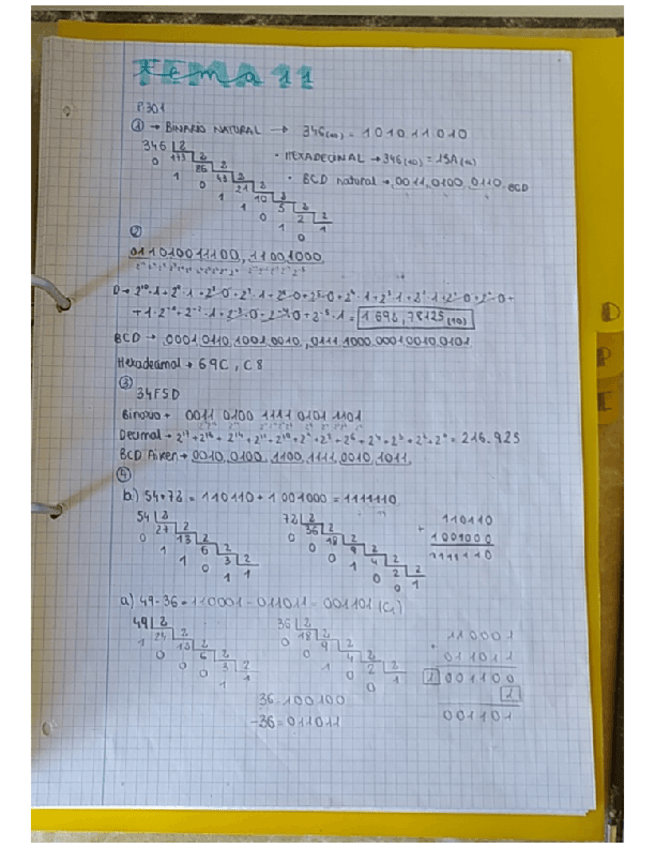 Tema 11
P.301
① → BINARIO NATURAL → 346(10) = 101011010
346 2
0 173 2
1 86 2
0 43 2
1 21 2
1 10 2
0 5 2
1 2 2
0 1
• HEXADECIMAL → 346(10) = 15A(16)
• BCD natural → 0011 0100 0110 BCD
②
011010011100, 11001000
1.692,78125(10)
BCD → 0001 0110 1001 0010, 0111 1000 0001 0010 0101
Hexadecimal → 69C, C8
③
34F5D
Binario → 0011 0100 1111 0101 1101
= 216.925
BCD Aiken → 0010 0100 1100 1111 0010 1011
④
b.) 54+72 = 110110 + 1001000 = 1111110
54 2
0 27 2
1 13 2
1 6 2
0 3 2
1 1
72 2
0 36 2
0 18 2
0 9 2
1 4 2
0 2 2
0 1
+ 110110
1001000
1111110
a) 49-36 = 110001 - 011011 = 001101 (C1)
49 2
1 24 2
0 6 2
0 3 2
1
36 2
0 18 2
0 9 2
1 4 2
0 2 2
0 1
36 100100
-36 = 011011
110001
011011
1 001100
1
001101